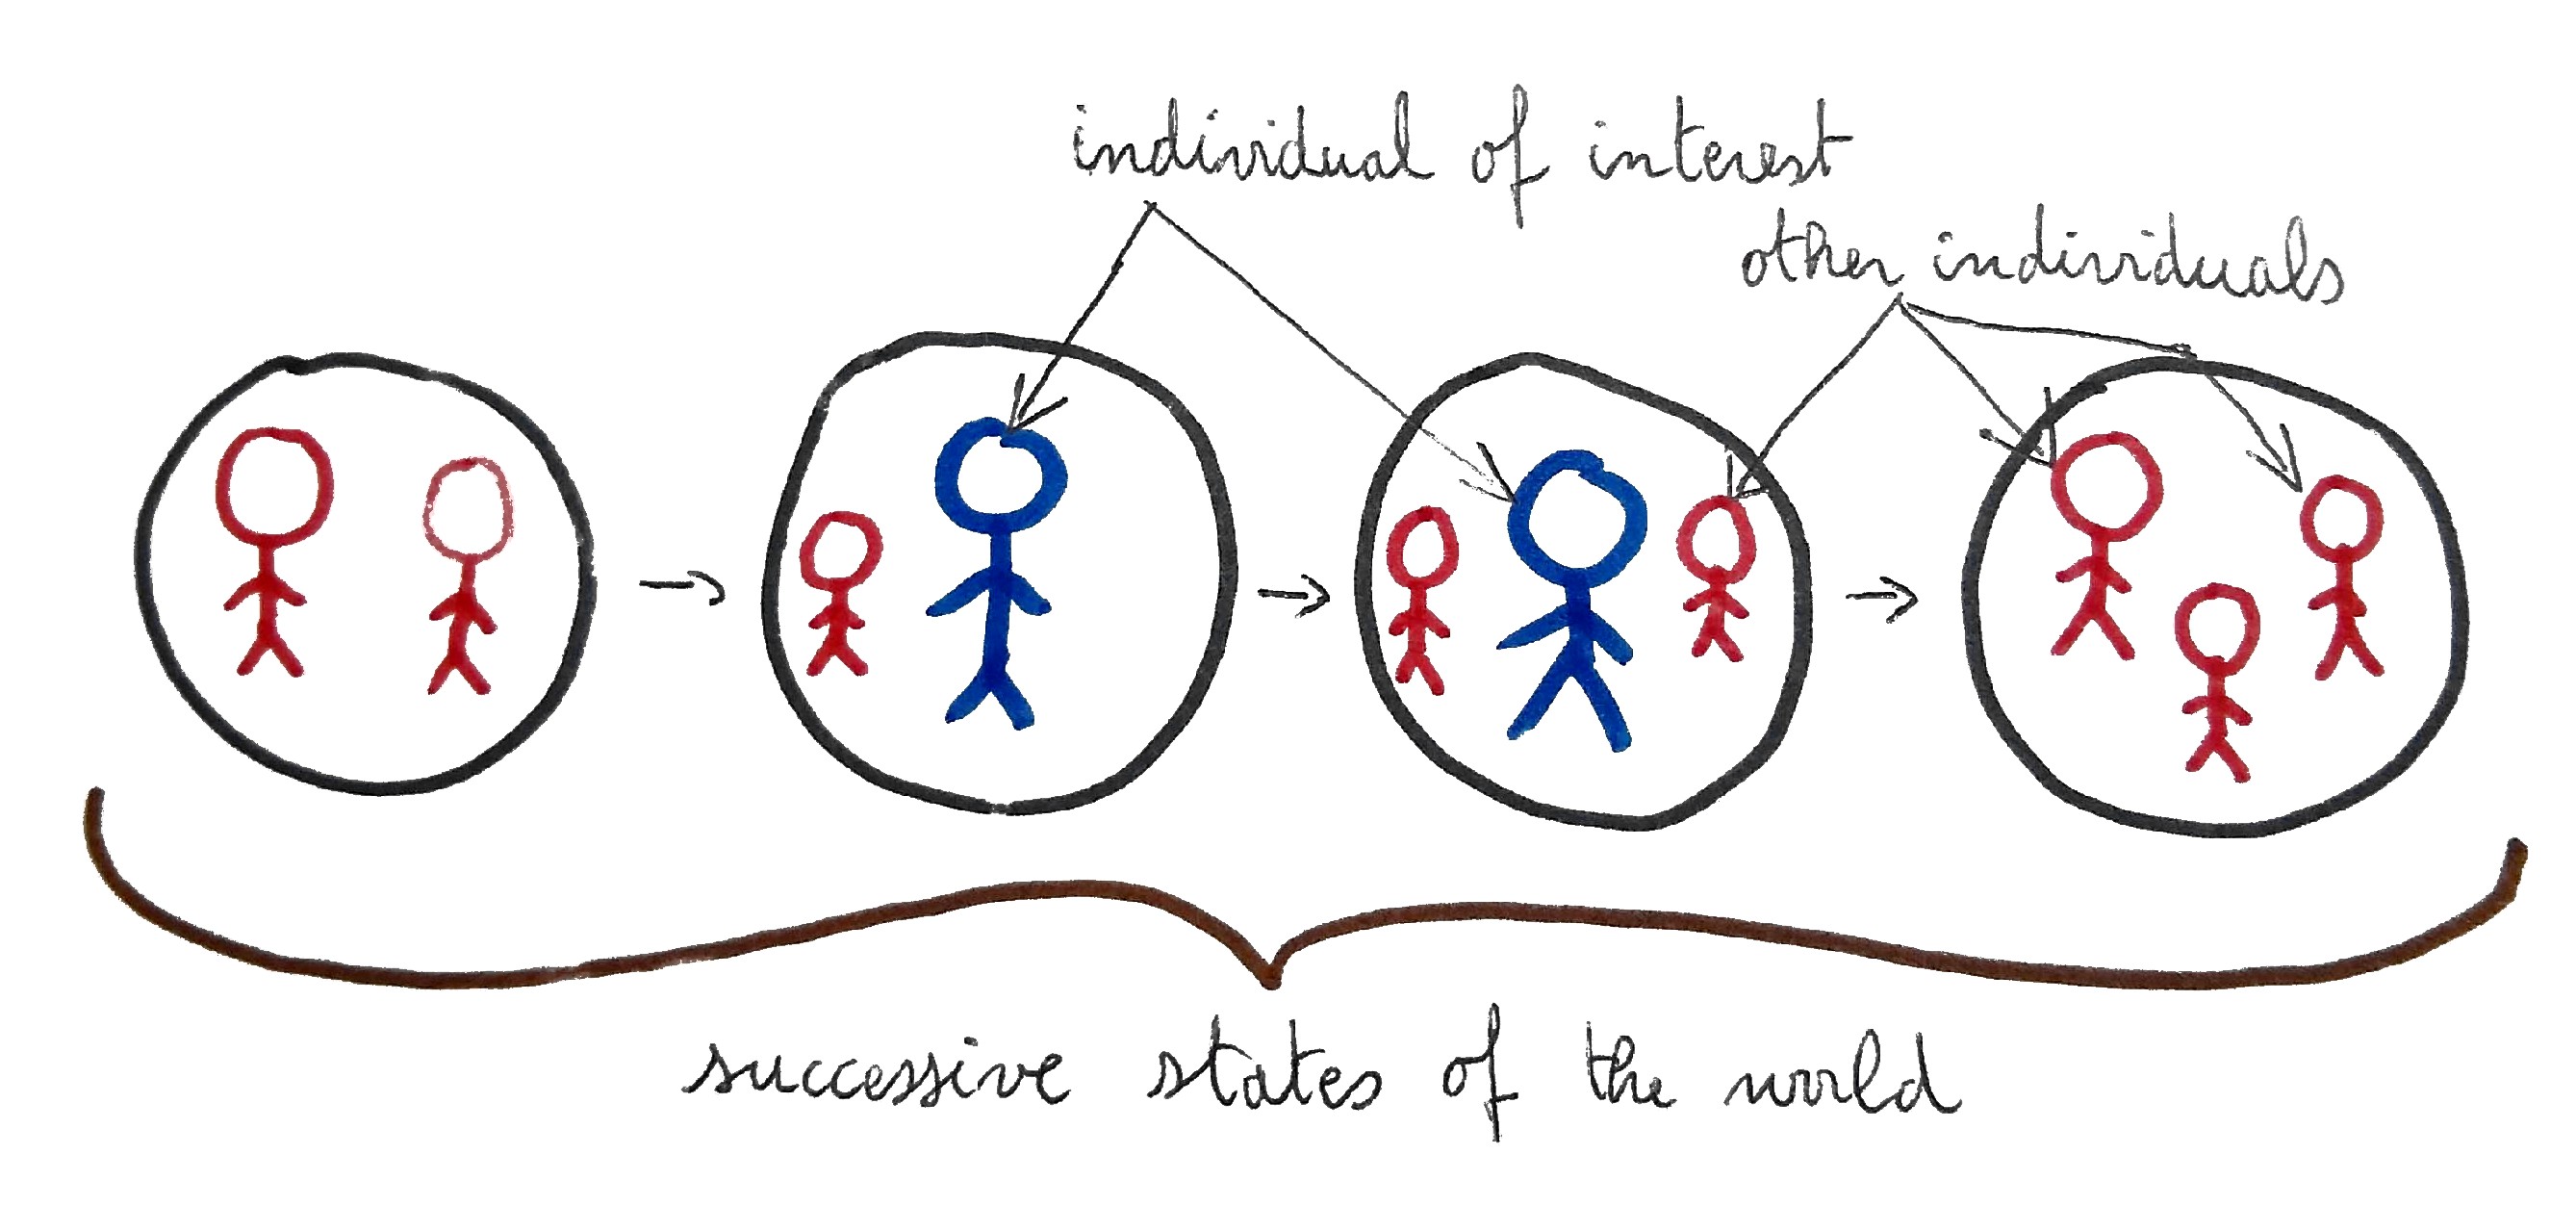 individual of interest
other individuals
successive states of the world